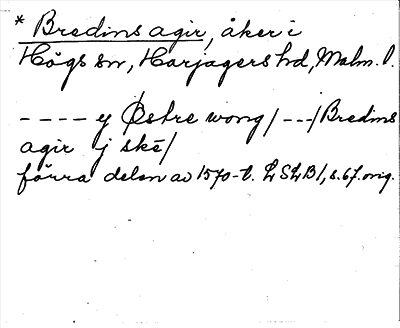 * Bredins agir, åker i
Högs sn, Harjagers hd, Malm. l.
- - - - ey Østre wong/ - - -/Bredins
agir j skē/
förra delen av 1570-t. LSLB 1, s. 67. orig.